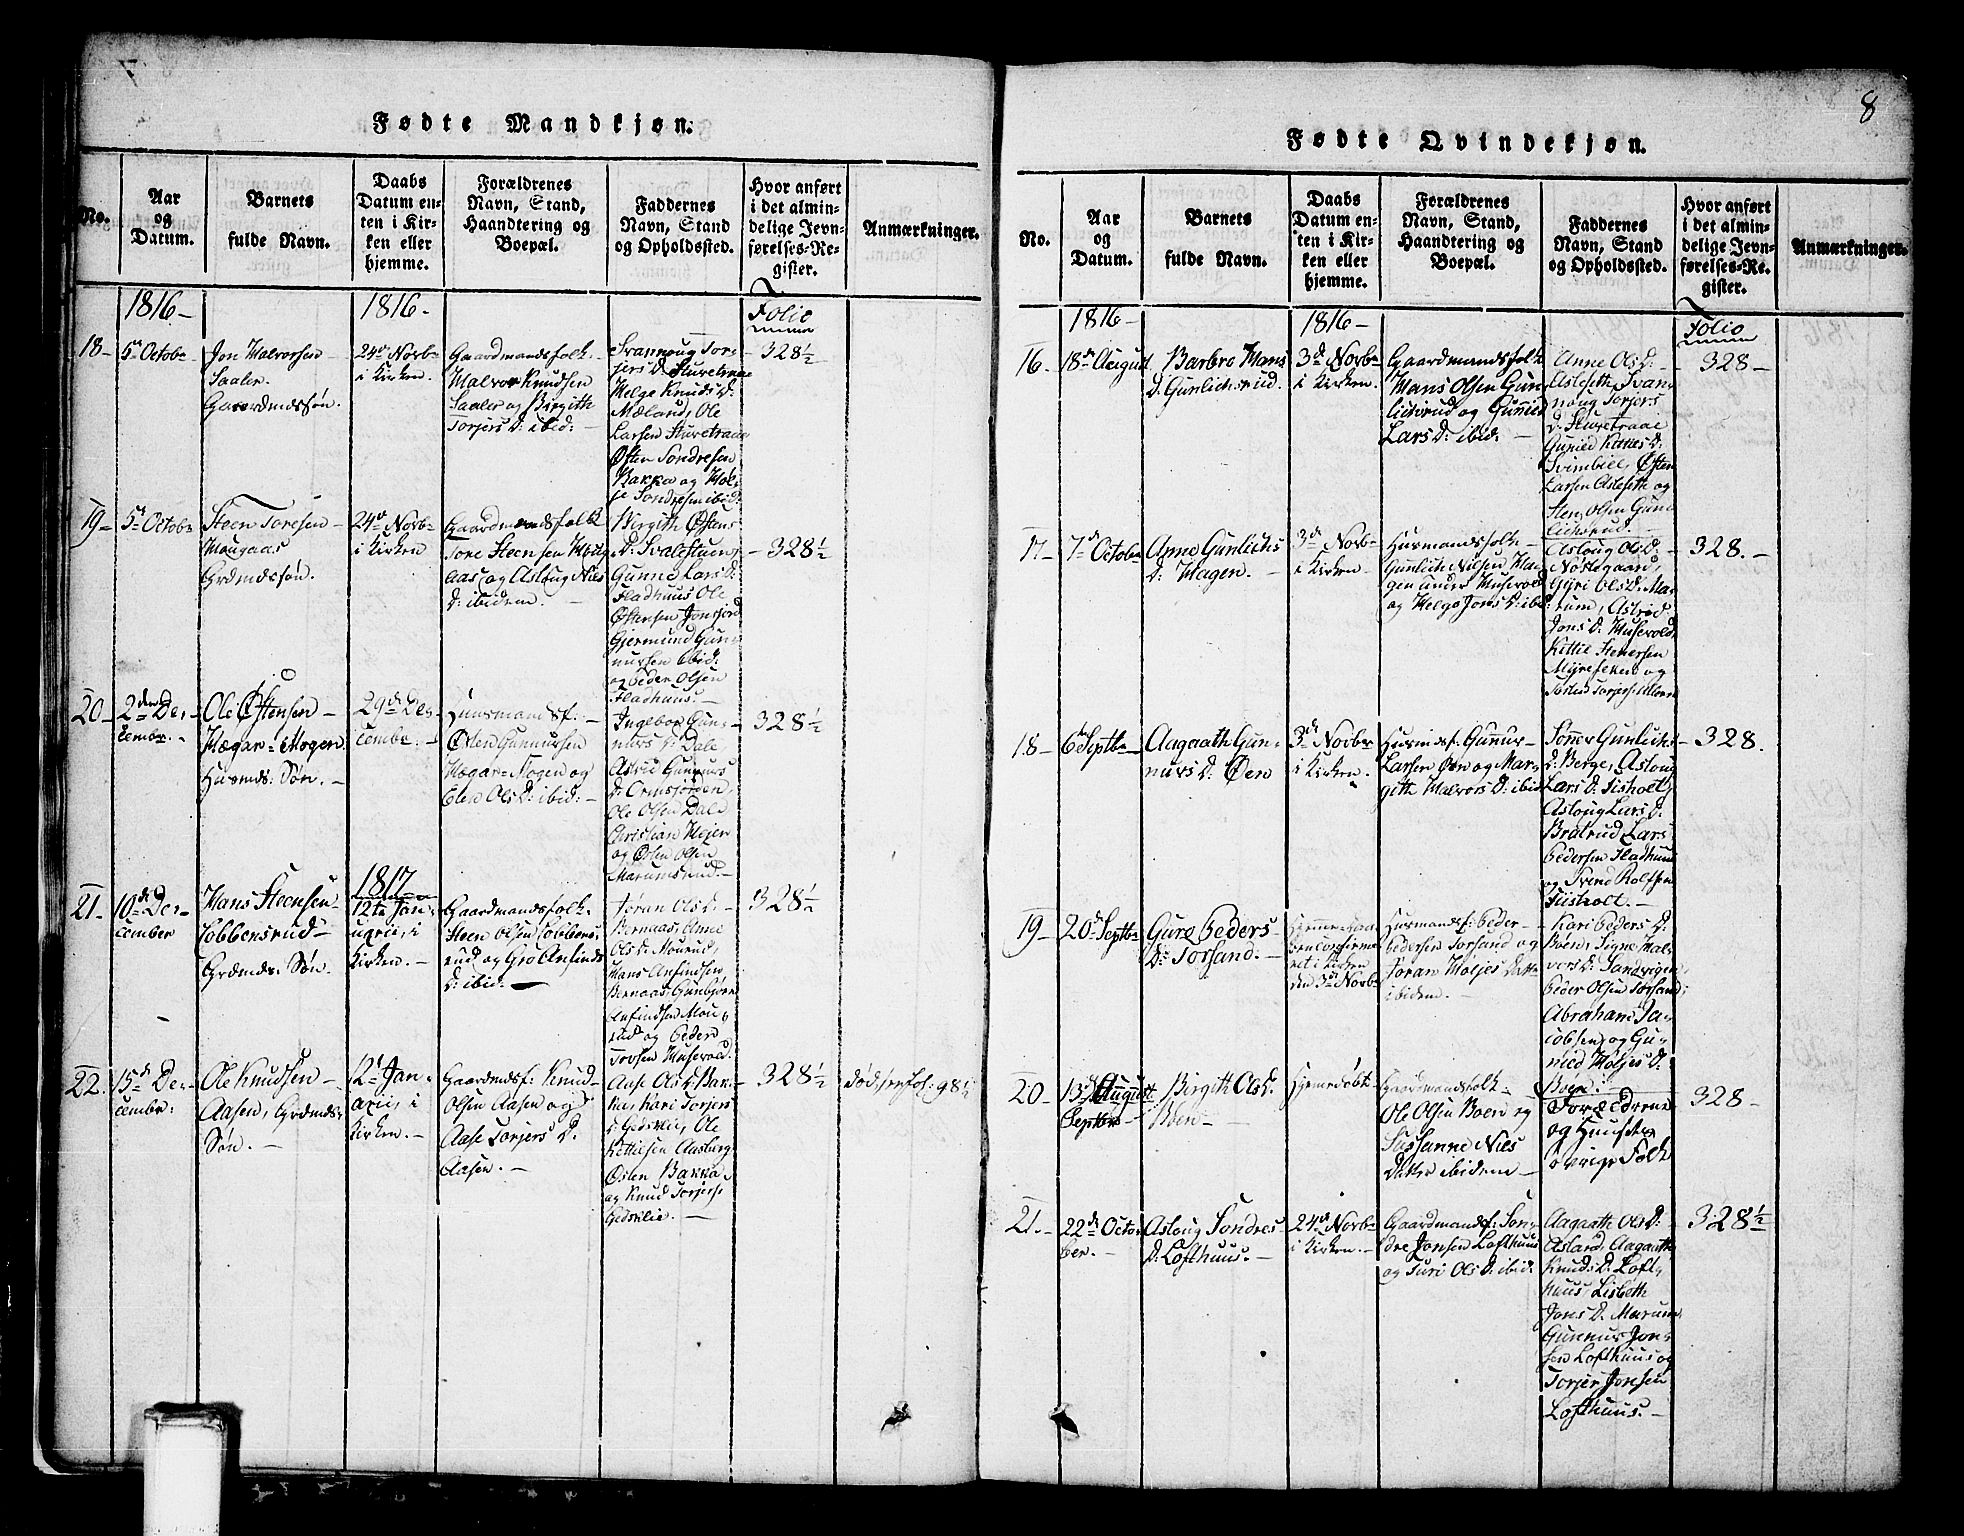 Fødte Mandkjøn.
No.
Aar
og
Datum.
Barnets
fulde Navn.
Daabs
Datum en-
ten i Kir-
ken eller
hjemme.
Forældrenes
Navn, Stand,
Haandtering og
Boepæl.
Faddernes
Navn, Stand
og Opholdssted.
Hvor anført
i det almin-
delige Jevn-
førelses-Re-
gister.
Anmærkninger.
1816-
1816-
Folio
18-
5te Octobr
Jon Halvorsen
Saaler
Gaardmdssøn.
24de Novbr
i Kirken.
Gaardmandsfolk
Halvor Knudsen
Saaler og Birgith
Torjers D: ibid: -
Svannoug Tor-
jers D. Sturetraae
Helge Knuds D:
Mæland, Ole
Larsen Sturetraae
Østen Sondresen
Bakka og Hol-
je Sondresen ibid:
- 328½
19-
5te Octobr
Steen Toresen -
Hougaas
Grdmdssøn.
24de Novbr
i Kirken
Gaardmandsfolk
Tore Steensen Houg
aas og Asloug Niels
D: ibidem. -
Birgith Østens
D. Svalestuen,
Gunne Lars D:
Fladhuus Ole
Østensen Jonsjord
Gjermund Gun-
nursen ibid:
og Peder Olsen
Fladhuus. -
- 328½
20-
2den De-
cembr. -
Ole Østensen -
Hægar-Mogen
Husmds: Søn. -
29de De-
cembr. -
Huusmandsf: -
Østen Gunnursen
Hægar-Mogen og
Elen Ols D: ibid: -
Ingebor Gun-
nurs D: Dale
Astrid Gunnurs
D: Ormsjorden,
Ole Olsen Dale
Christian Hejer
og Østen Olsen
Marumsrud. -
328½
21-
10de De-
cember
Hans Steensen
Lobbensrud -
Grdmds: Søn -
1817
12te Jan-
uarii, i
Kirken. -
Gaardmandsfolk
Steen Olsen Lobbens-
rud og Gro Anfinds
D: ibid: -
Jøran Ols D: -
Bernaas, Anne
Ols D: Mourud,
Hans Anfindsen
Bernaas, Gunbjørn
Anfindsen Mou-
rud og Peder
Tovsen Husevold.
328½
22.
15de De-
cembr:
Ole Knudsen -
Aasen, Grdmds:
Søn. -
12te Jan-
uarii, i
Kirken. -
Gaardmdsf: Knud
Olsen Aasen og
Aase Torjers D.
Aasen. -
Anne Ols D: Bak-
ka, Kari Torjers
D Gedsklie, Ole
Kittilsen Aasberg
Østen Bakka -
og Knud Torjers:
Gedsklie. -
328½
død, see fol: 98½
8
Fødte Qvindekjøn.
No.
Aar
og
Datum.
Barnets
fulde Navn.
Daabs
Datum en-
ten i Kir-
ken eller
hjemme.
Forældrenes
Navn, Stand,
Haandtering og
Boepæl.
Faddernes
Navn, Stand
og Opholdssted.
Hvor anført
i det almin-
delige Jevn-
førelses-Re-
gister.
Anmærkninger.
1816-
1816-
Folio
16-
18de August
Barbro Hans
D: Gunlichsrud.
3de Novbr
i Kirken.
Gaardmandsfolk
Hans Olsen Gun-
lichsrud og Gunild
Lars D: ibid: -
Anne Ols D:
Asleseth, Svan-
noug Torjers
D. Sturetraae
Gunild Kittils D:
Svimbiel, Østen
Larsen Asleseth og
Sten Olsen Gun-
lichsrud. -
- 328 -
17-
7de Octobr
Anne Gunlichs
D: Hagen. -
3de Novbr
i Kirken. -
Husmandsfolk -
Gunlich Nilsen Ha-
gen under Husevold
og Helge Jons D: ibid:
Asloug Ols D: -
Nøstegaard,
Gyri Ols D: Ma-
rum, Astrid
Jons D: Husevold
Kittil Stenersen
og
- 328. -
18-
6te Septbr
Aagaath Gun-
nurs D: Øen
3de Novbr
i Kirken.
Husmdsf: Gunnur
Larsen Øen og Mar-
gith Halvors D: ibid
Sønner Gunlichs
D: Berge, Asloug
Lars D: Tisholt,
Asloug Lars D:
Bratrud Lars
Pedersen Fladhuus
og Svend Rolfsen
Tiisholt. -
- 328.
19-
20de Septbr
Gure Peders
D: Torsand. -
Hjemmedaa-
ben confirme-
ret i Kirken
den 3de Novbr
Husmandsf: Peder
Pedersen Torsand og
Jøran Holjes Datter
ibidem. -
Kari Peders D.
Boen, Signe Hal-
vors D: Sandvigen,
Peder Olsen Torsand,
Abraham Ja-
cobsen og Gu-
nild Holjes D:
Boen. -
20-
13de August
Septbr -
Birgith Ols D:
Boen -
Hjemmedøbt
Gaardmandsfolk
Ole Olsen Boen og
Sussanne Niels
Datter ibidem -
Forældrene
og Huusets
øvrige Folk
328 -
21. -
22de Octo-
ber. -
Asloug Sondres
D: Lofthuus. -
24de Novbr
i Kirken. -
Gaardmandsf: Son-
dre Jonsen Lofthuus
og Turi Ols D: ibid:
Aagaath Ols D:
Asland, Aagaath
Knuds D: Loft-
huus, Lisbeth
Jons D. Marum
Gunnur Jon-
sen Lofthuus og
Torjer Jonsen
Lofthuus. -
328½